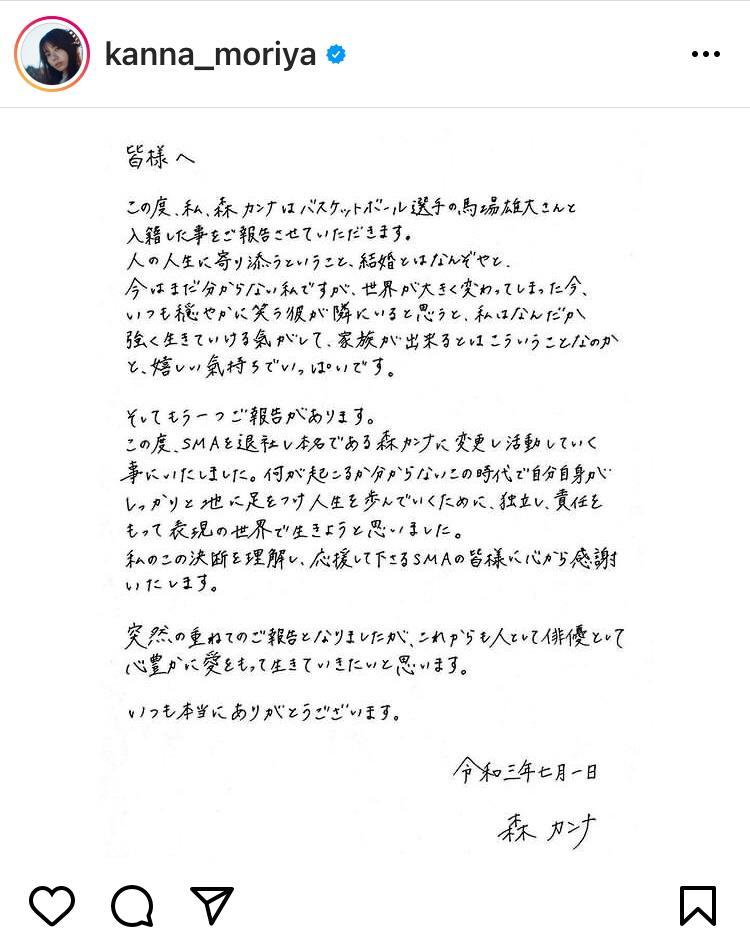 kanna_moriya
皆様へ
この度、私、森カンナはバスケットボール選手の馬場雄大さんと
入籍した事をご報告させていただきます。
人の人生に寄り添うということ、結婚とはなんぞやと、
今はまだ分からない私ですが、世界が大きく変わってしまった今、
いつも穏やかに笑う彼が隣にいると思うと、私はなんだか
強く生きていける気がして、家族が出来るとはこういうことなのか
と、嬉しい気持ちでいっぱいです。
そしてもう一つご報告があります。
この度、SMAを退社し本名である森カンナに変更し活動していく
事にいたしました。何が起こるか分からないこの時代で自分自身が
しっかりと地に足をつけ人生を歩んでいくために、独立し、責任を
もって表現の世界で生きようと思いました。
私のこの決断を理解し、応援して下さるSMAの皆様に心から感謝
いたします。
突然の重ねてのご報告となりましたが、これからも人として俳優として
心豊かに愛をもって生きていきたいと思います。
いつも本当にありがとうございます。
令和三年七月一日
森 カンナ